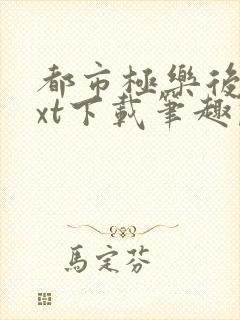 都市極樂後
xt下載筆趣
馬定芬